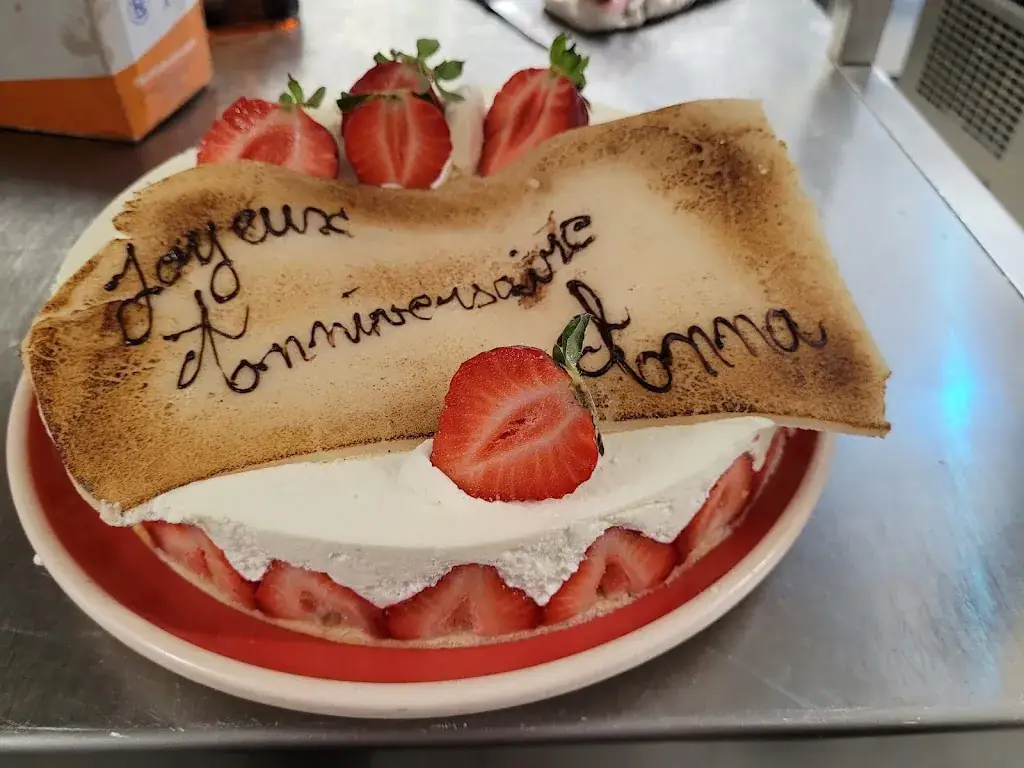 Joyeux
Anniversaire
Anna